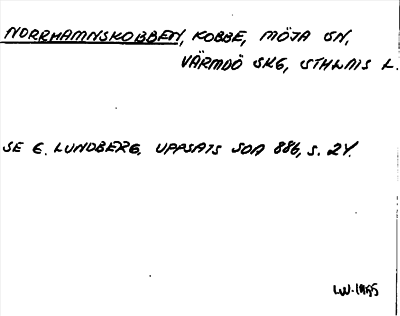 NORRHAMNSKOBBEN, KOBBE, MÖJA SN,
VÄRMDÖ SKG, STHLMS L.
SE E. LUNDBERG, UPPSATS SOA 886, S. 24.